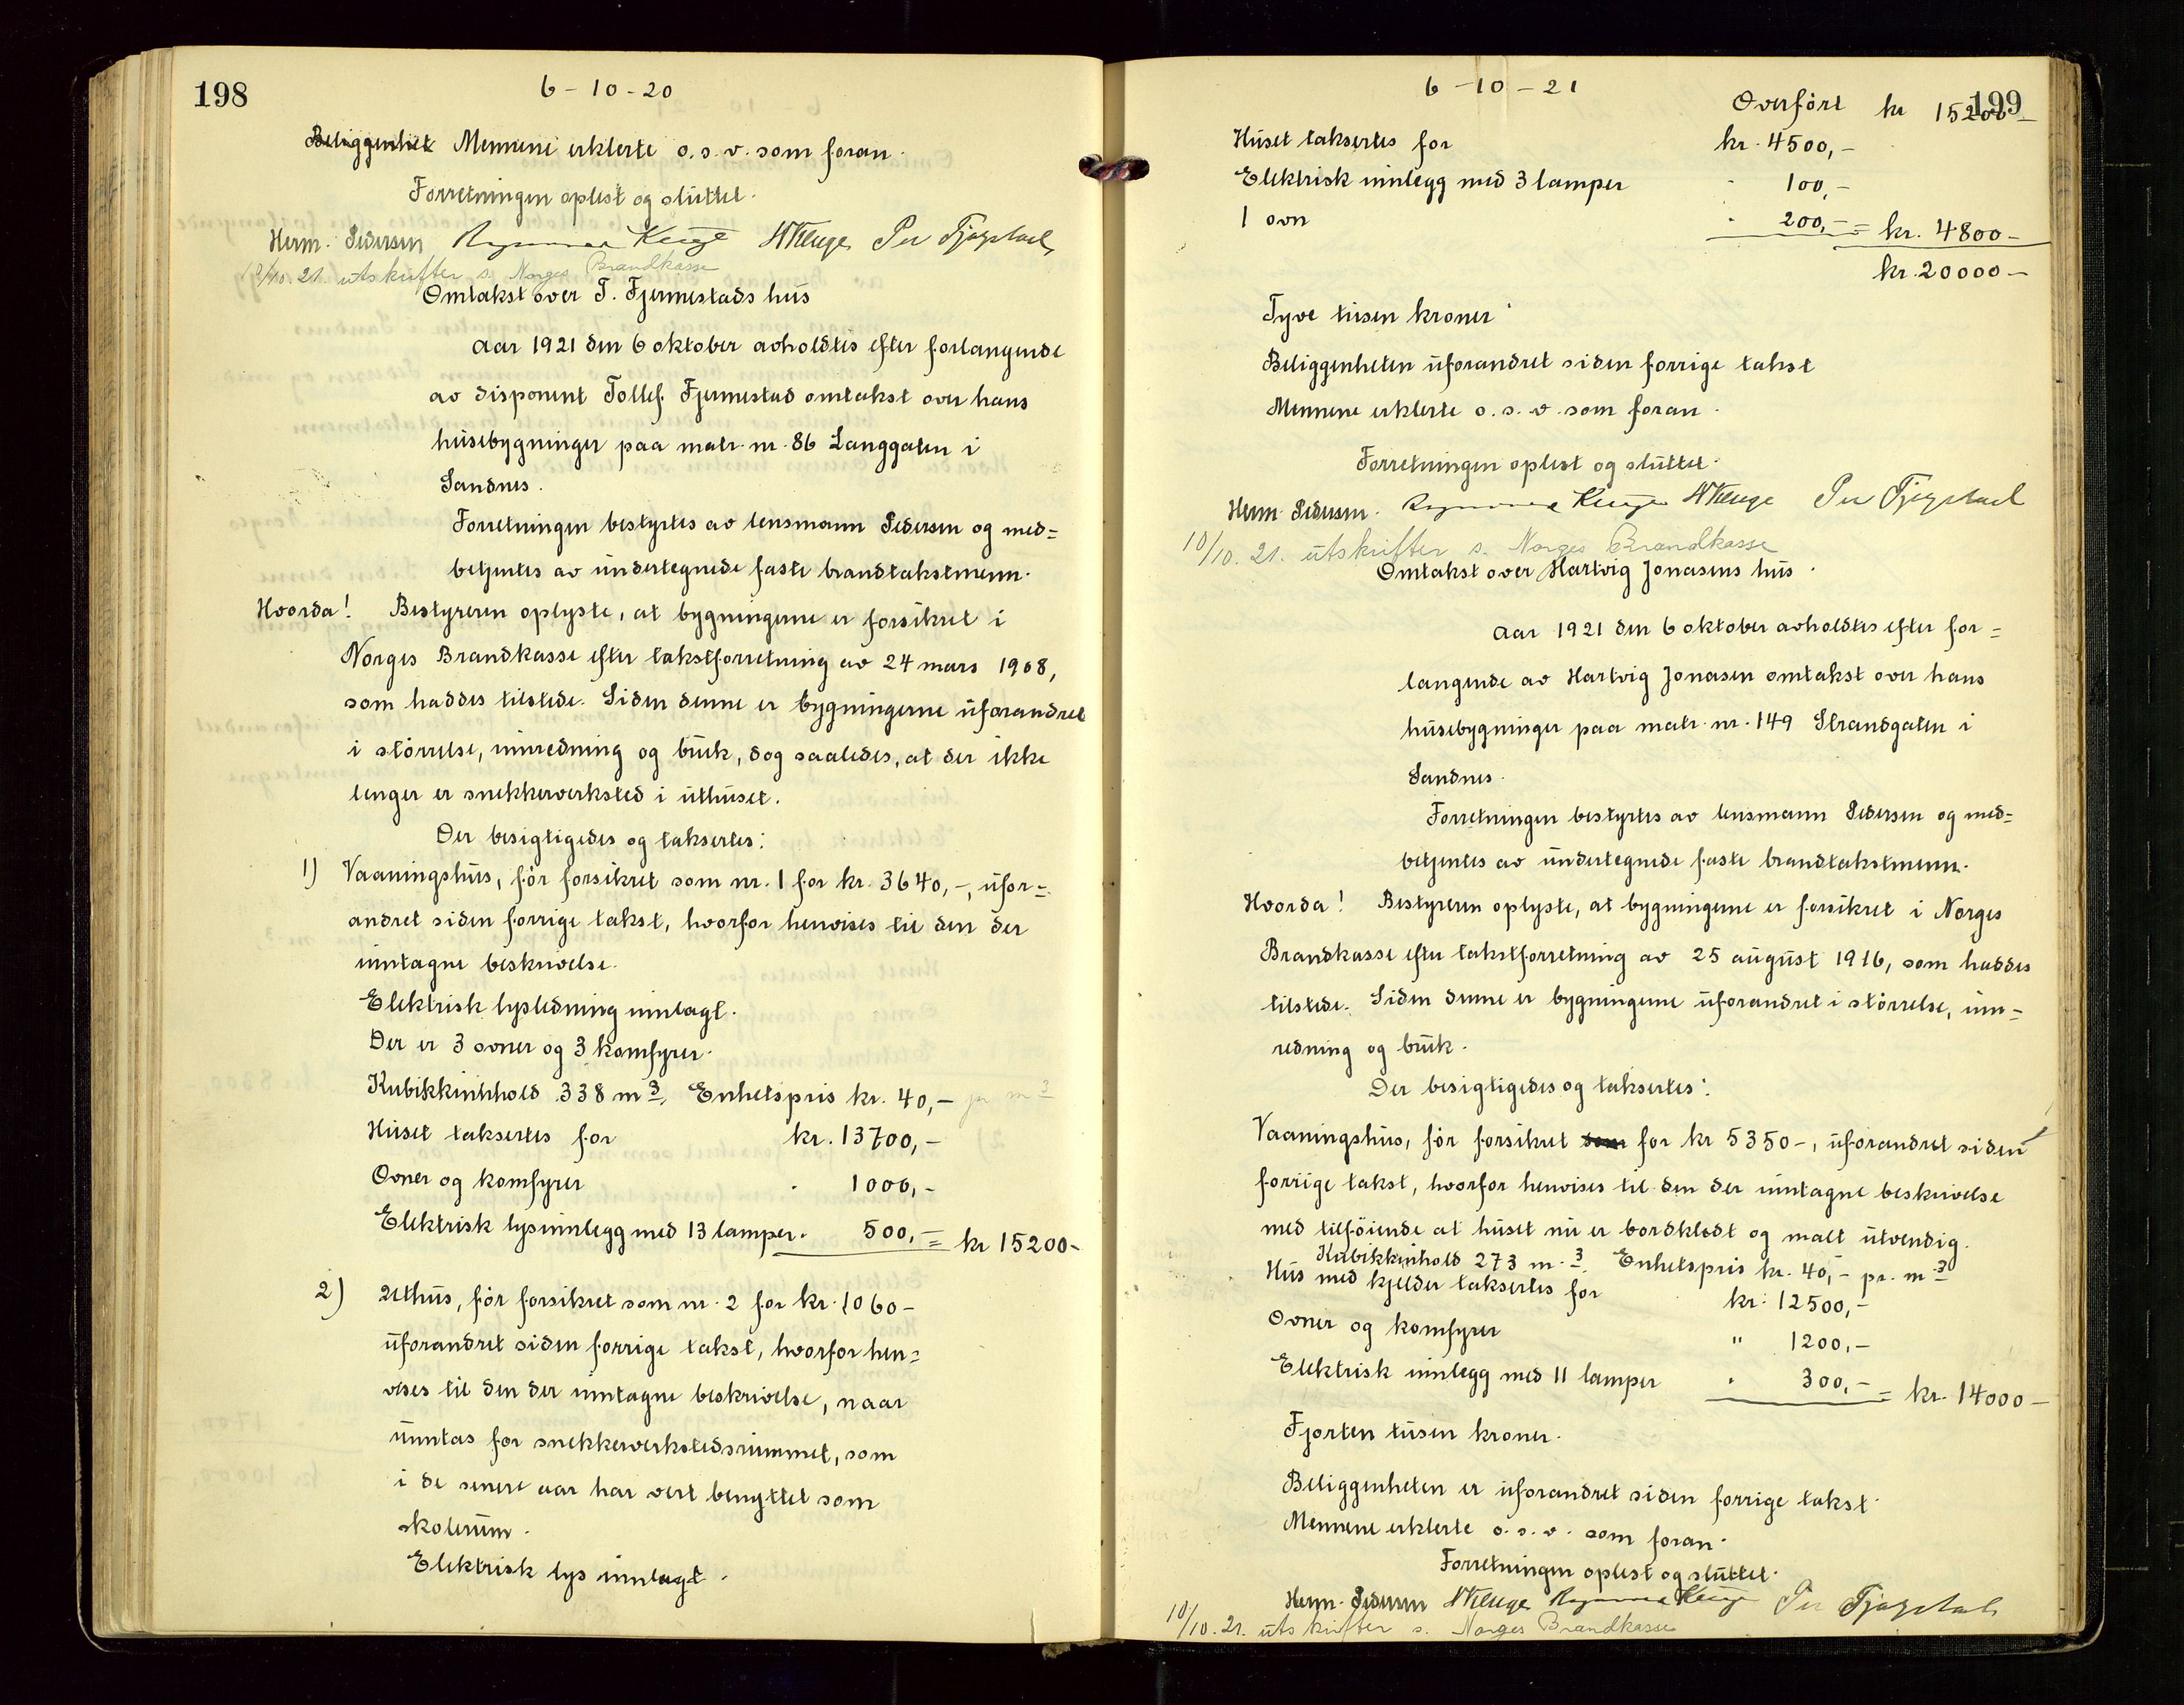 198
6 - 10 - 20
Beliggenhet Mennene erklerte o. s. v. som foran.
Forretningen oplest og sluttet.
Herm. Pedersen Kluge Per Fjogstad
10/10. 21. utskrifter s. Norges Brandkasse
Omtakst over T. Fjermestads hus
Aar 1921 den 6 oktober avholdtes efter forlangende
av disponent Tollef. Fjermestad omtakst over hans
husebygninger paa matr. nr. 86 Langgaten i
Sandnes.
Forretningen bestyrtes av lensmann Pedersen og med=
betjentes av undertegnede faste brandtakstmenn.
Hvorda! Bestyreren oplyste, at bygningerne er forsikret i
Norges Brandkasse efter takstforretning av 24 mars 1908,
som haddes tilstede. Siden denne er bygningerne uforandret
i störrelse, innredning og bruk, dog saaledes, at der ikke
lenger er snekkerverksted i uthuset.
Der besigtigedes og taksertes:
1) Vaaningshus, för forsikret som nr. 1 for kr. 3640,-, ufor=
andret siden forrige takst, hvorfor henvises til den der
inntagne beskrivelse.
Elektrisk lysledning innlagt.
Der er 3 ovner og 3 komfyrer.
Kubikkinhhold 338 m3. Enhetspris kr. 40,- pr m3
Huset taksertes for kr. 13700,-
Ovner og komfyrer . 1000,-
Elektrisk lysinnlegg med 13 lamper. 500,- = kr 15200-
2) Uthus, för forsikret som nr. 2 for kr. 1060-
uforandret siden forrige takst, hvorfor hen=
vises til den der inntagne beskrivelse, naar
unntas for snekkerverkstedsrummet, som
i de senere aar har vert benyttet som
skolerum.
Elektrisk lys innlagt.
199
6 - 10 - 21
Overfört kr 15200-
Huset taksertes for kr. 4500,-
Elektrisk innlegg med 3 lamper . 100,-
1 ovn . 200,- = kr. 4800-
kr. 20000-
Tyve tusen kroner.
Beliggenheten uforandret siden forrige takst
Mennene erklerte o. s. v. som foran.
Forretningen oplest og sluttet.
Herm. Pedersen. Kluge Per Fjogstad
10/10. 21. utskrifter s. Norges Brandkasse
Omtakst over Hartvig Jonasens hus.
Aar 1921 den 6 oktober avholdtes efter for=
langende av Hartvig Jonasen omtakst over hans
husebygninger paa matr. nr. 149 Strandgaten i
Sandnes.
Forretningen bestyrtes av lensmann Pedersen og med=
betjentes av undertegnede faste brandtakstmenn.
Hvorda! Bestyreren oplyste, at bygningerne er forsikret i Norges
Brandkasse efter takstforretning av 25 august 1916, som haddes
tilstede. Siden denne er bygningerne uforandret i störrelse, inn=
redning og bruk.
Der besigtigedes og taksertes:
Vaaningshus, för forsikret som for kr 5350-, uforandret siden
forrige takst, hvorfor henvises til den der inntagne beskrivelse
med tilföiende at huset nu er bordkledt og malt utvendig.
Kubikkinhold 273 m.3. Enhetspris kr. 40,- pr. m.3
Hus med kjelder taksertes for kr. 12500,-
Ovner og komfyrer " 1200,-
Elektrisk innlegg med 11 lamper . 300,- = kr. 14000-
Fjorten tusen kroner.
Beliggenheten er uforandret siden forrige takst.
Mennene erklerte o. s. v. som foran.
Forretningen oplest og sluttet.
Herm. Pedersen Kluge Per Fjogstad
10/10. 21. utskrifter s. Norges Brandkasse